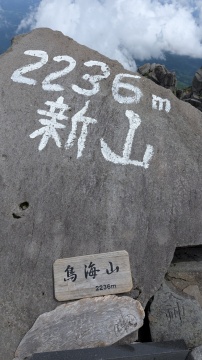 2236m
新山
鳥海山
2236m